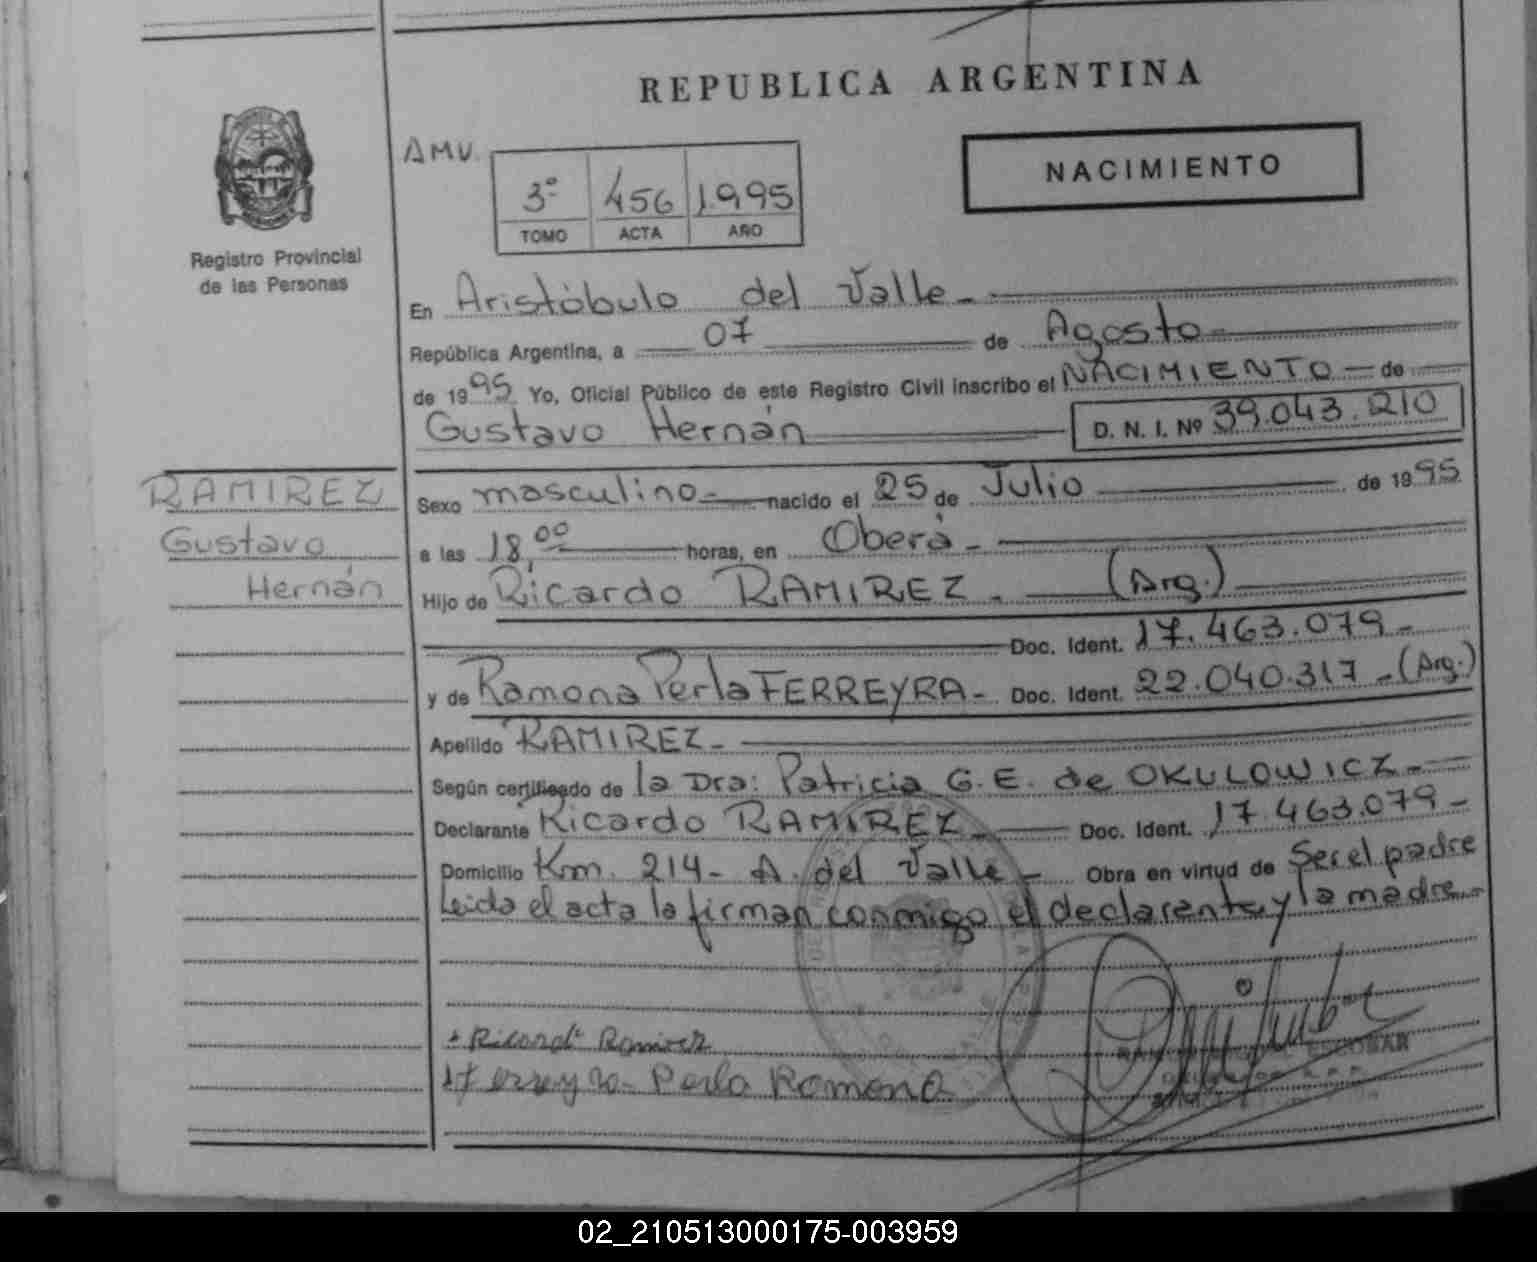 REPUBLICA ARGENTINA
NACIMIENTO
AMV.
3º 456 1.995
TOMO ACTA AÑO
Registro Provincial
de las Personas
En Aristóbulo del Valle -
República Argentina, a 07 de Agosto -
de 1995 Yo, Oficial Público de este Registro Civil inscribo el NACIMIENTO - de
Gustavo Hernán D. N. I. Nº 39.043.210
RAMIREZ
Gustavo
Hernán
Sexo masculino - nacido el 25 de Julio de 1995
a las 18,00 horas, en Oberá -
Hijo de Ricardo RAMIREZ - (Arg.)
Doc. Ident. 17.463.079 -
y de Ramona Perla FERREYRA - Doc. Ident. 22.040.317 - (Arg.)
Apellido RAMIREZ -
Según certificado de la Dra: Patricia G.E. de OKULOWICZ -
Declarante Ricardo RAMIREZ - Doc. Ident. 17.463.079 -
Domicilio Km. 214 - A. del Valle - Obra en virtud de Ser el padre
Leida el acta la firman conmigo el declarante y la madre -
Ricardo Ramirez
Ferreyra Perla Romona
ESCOBAR
02_210513000175-003959